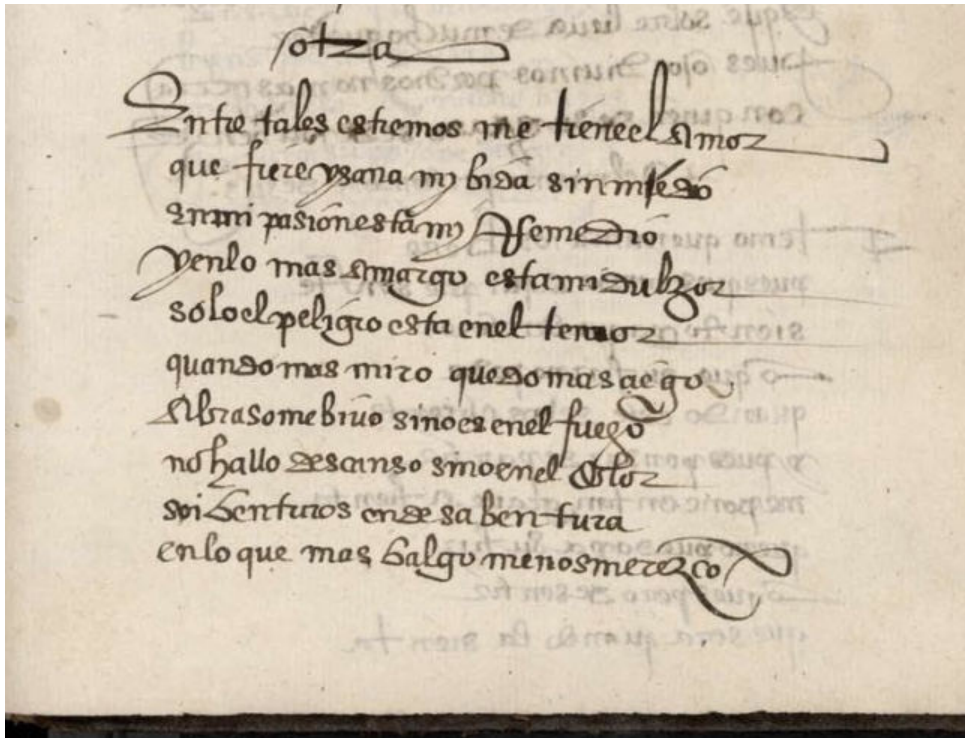 otra
Entre tales estremos me tiene el amor
que fiere y sana my bida sin miedo
en mi pasion esta my Remedio
y en lo mas amargo esta mi dulzor
solo el peligro esta en el temor
quando mas miro quedo mas çiego
abrasome bivo si no es en el fuego
no hallo descanso sino en el dolor
soi benturoso en desabentura
en lo que mas balgo menos merezco